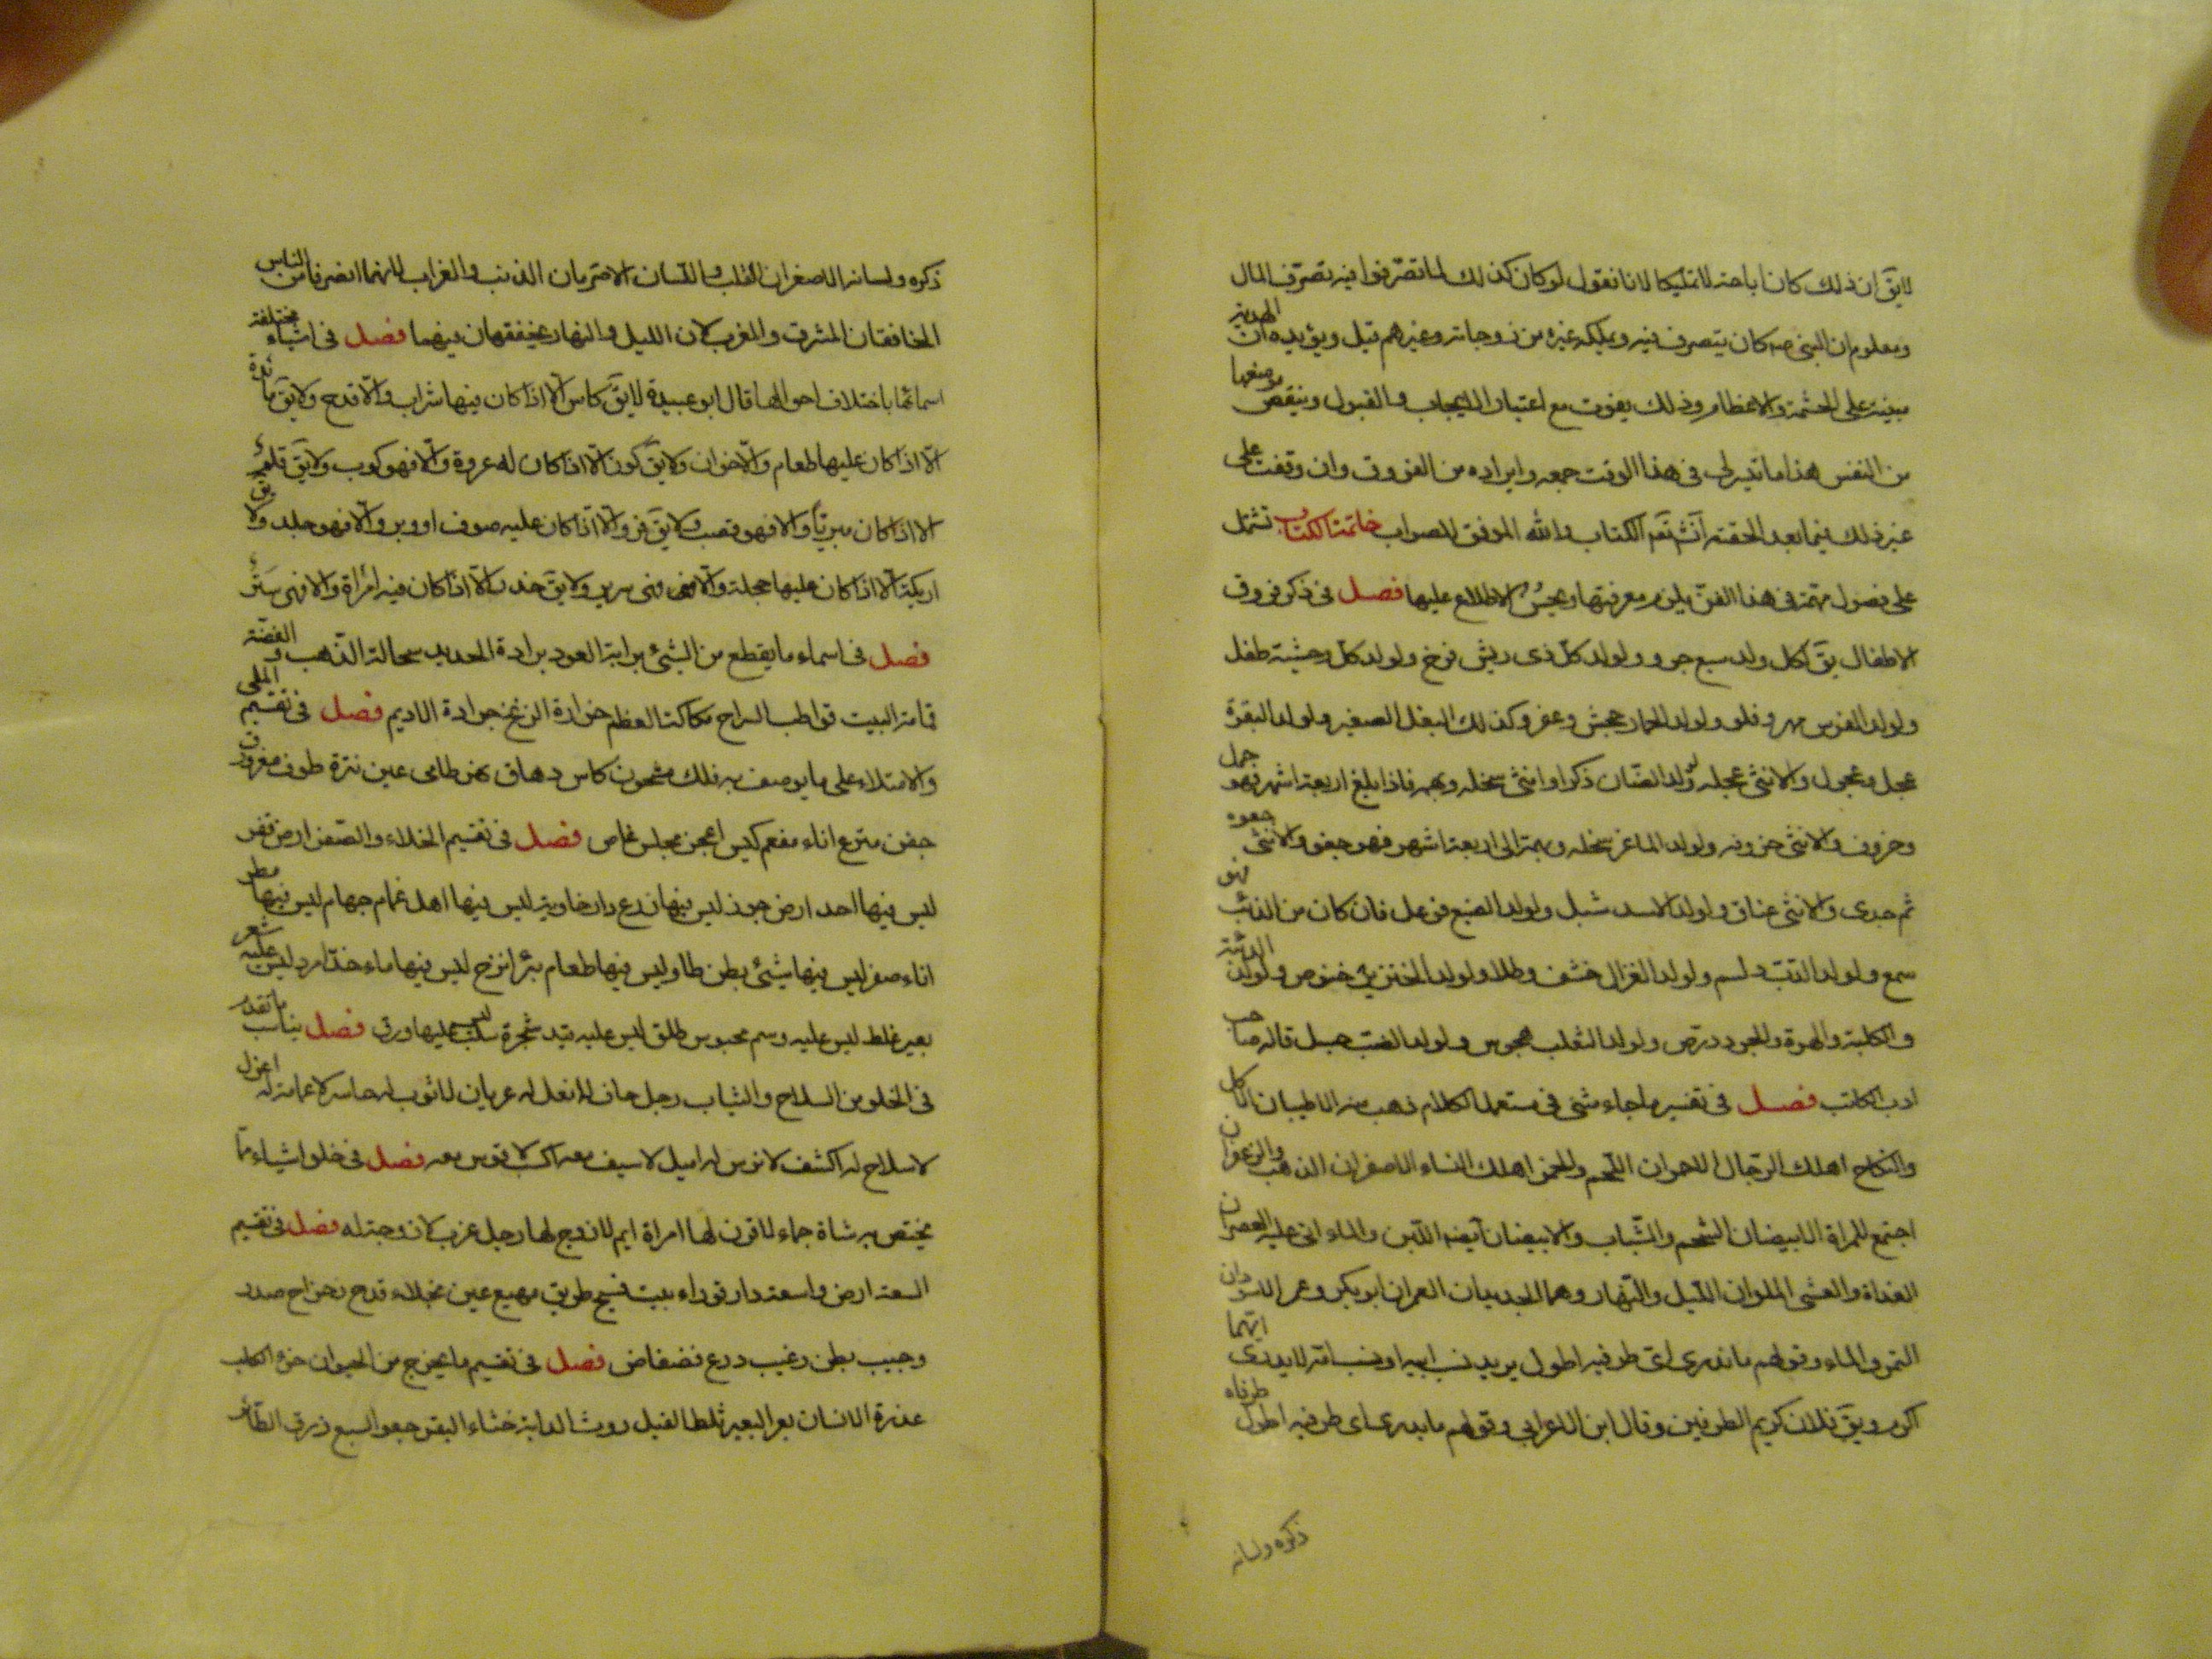 لايقَ ان ذلك كان اباحة لا تمليكا لانا نقول لو كان كذلك لما تصرّفوا فيه تصرّف المال
ومعلوم ان النبي صه كان يتصرف فيه ويملكه غيره من زوجاته وغيرهم قيل ويؤيده ان الهدية
مبنية على الحشمة والاعظام وذلك يفوت مع اعتبار الايجاب والقبول وينقص موضعها
من النفس هذا ما تيسر لي في هذا الوقت جمعه وايراده من الفروق وان وقفت على
غير ذلك فيما بعد الحقته آنشَ تعَم الكتاب والله الموفق للصواب خاتمة الكتاب تشتمل
على فصول مهمة في هذا الفنّ يلزم معرفتها ويحسُن الاطلاع عليها فصل في ذكر فروق
الاطفال يقَ لكل ولد سبع جرو ولولد كلّ ذى ريش فرخ ولولد كلّ وحشية طفل
ولولد الفرس مهر وفلو ولولد الحمار جحش وعفو وكذلك البغل الصغير ولولد البقرة
عجل وعجول والانثى عجلة ولولد الضّان ذكرا او انثى سخلة وبهمة فاذا بلغ اربعة اشهر فهو حمل
وخروف والانثى خروفة ولولد الماعز سخلة وبهمة الى اربعة اشهر فهو جفر والانثى جفره
ثم جدى والانثى عناق ولولد الاسد شبل ولولد الضبع فرعل فان كان من الذئب فهو
سمع ولولد الدّبّ ديسم ولولد الغزال خشف وطلا ولولد الخنزير خنوص ولولد الذئبة
والكلبة والهرة والجرذ درص ولولد الثعلب هجرس ولولد الضب حسل قاله صاحب
ادب الكاتب فصل في تفسير ما جاء مثنى في مستعمل الكلام ذهب منه الاطيبان الاكل
والنكاح اهلك الرّجال الاحمران اللّحم والخمر اهلك النساء الاصفران الذهب والزعفران
اجتمع للمراة الابيضان الشحم والشّباب والابيضان ايضه اللّبن والماء اتى عليه العصران
الغداة والعشى الملوان اللّيل والنّهار وهما الجديدان العمران ابو بكر وعمر الاسودان
التمر والماء وقولهم ما ندرى اىّ طرفيه اطول يريد نسب ابيه او نسب امه لا يدرى ايّهما
اكرم ويقَ فلان كريم الطرفين وقال ابن الاعرابي وقولهم ما يدرى اى طرفيه اطول طرفاه
ذكره ولسانه
ذكره ولسانه الاصغران القلب واللّسان الاصرمان الذئب والغراب لانهما انصرفا من الناس
الخافقان المشرق والمغرب لان الليل والنهار يخفقان بينهما فصل في اشياء مختلفة
اسمائها باختلاف احوالها قال ابو عبيدة لايقَ كاس الّا اذا كان فيها شراب والّا قدح ولايقَ مائدة
الّا اذا كان عليها طعام والّا خوان ولايقَ كوز الّا اذا كان له عروة والّا فهو كوب ولايقَ قلم
الا اذا كان مبريّا والا فهو قصب ولايقَ فرو الّا اذا كان عليه صوف او وبر والّا فهو جلد ولا يقَ
اريكة الّا اذا كان عليها حجلة والّا فهى سرير ولايقَ خدر الّا اذا كان فيه امراة والا فهى ستر
فصل في اسماء ما يقطع من الشئ براية العود برادة الحديد سحالة الذّهب والفضّة
قمامة البيت قواطب السراج مكاكة العظم جرادة الاديم فصل في تقسيم الملى
والامتلاء على ما يوصف به فلك مشحون كاس دهاق نهر طامى عين نترة طرف مغرورق
جفن مترع اناء مفعم كيس اعجر مجلس غاص فصل في تقسيم الخلاء والصّفر ارض قفر
ليس فيها احد ارض جرز ليس فيها زرع دار خاوية ليس فيها اهل غمام جهام ليس فيها مطر
اناء صفر ليس فيها شئ بطن طاو ليس فيها طعام بئر انزح ليس فيها ماء خدّ امرد ليس عليه شعر
بعير غلط ليس عليه وسم محبوس طلق ليس عليه قيد شجرة سلب ليس عليها ورق فصل يناسب ما تقدم
في الخلو من السلاح والثياب رجل حاف لا نعل له عريان لا ثوب له حاسر لا عمامة له اعزل
لا سلاح له اكشف لا ترس له اميل لا سيف معه انكب لا قوس معه فصل في خلو اشياء ممّا
يختص به شاة جماء لا قرن لها امراة ايم لا زوج لها رجل عزب لا زوجة له فصل في تقسيم
السعة ارض واسعة دار قوراء بيت فسيح طريق مهيع عين نجلاء قدح رحراح صدر
رحيب بطن رغيب درع فضفاض فصل في تقسيم ما يخرج من الحيوان خرء الكلب
عذرة الانسان بعر البعير ثلط الفيل روث الدابة خثاء البقر جعر السبع ذرق الطّائر